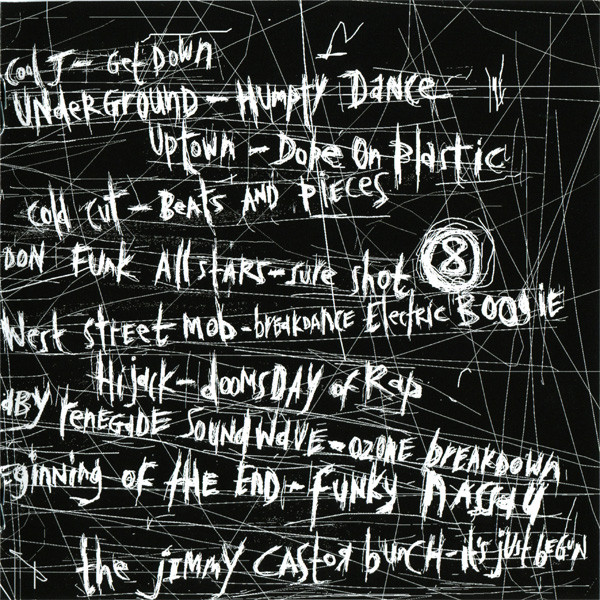 Cool J - Get Down
UNDERGROUND - HUMPTY DANCE
UPTOWN - DOPE ON PLASTIC
COLD CUT - BEATS AND PIECES
DON FUNK ALL STARS - SURE SHOT 8
WEST STREET MOB - BREAKDANCE ELECTRIC BOOGIE
HIJACK - DOOMSDAY OF RAP
dBY RENEGIDE SOUNDWAVE - OZONE BREAKDOWN
EGINNING OF THE END - FUNKY NASSAU
THE JIMMY CASTOR BUNCH - IT'S JUST BEGUN